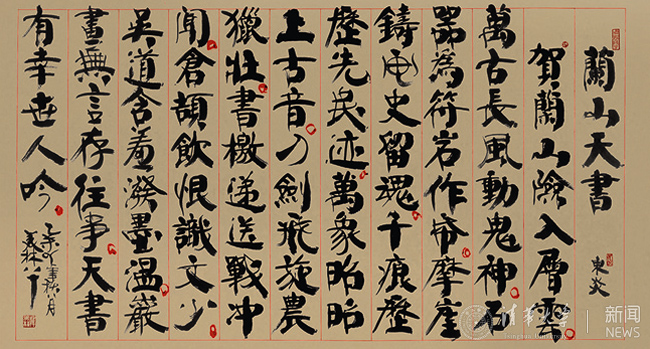 蘭山天書
賀蘭山險入層雲
萬古長風動鬼神石
器為符岩作帋摩崖
鑄画史留魂千痕歷
歷先民迹萬象昭昭
上古音刀劍飛旋農
獵壯書檄遞送戰沖
聞倉頡飲恨識文少
吳道含羞潑墨溫巖
畫無言存往事天書
有幸世人吟
清华大学 新闻
Tsinghua University NEWS